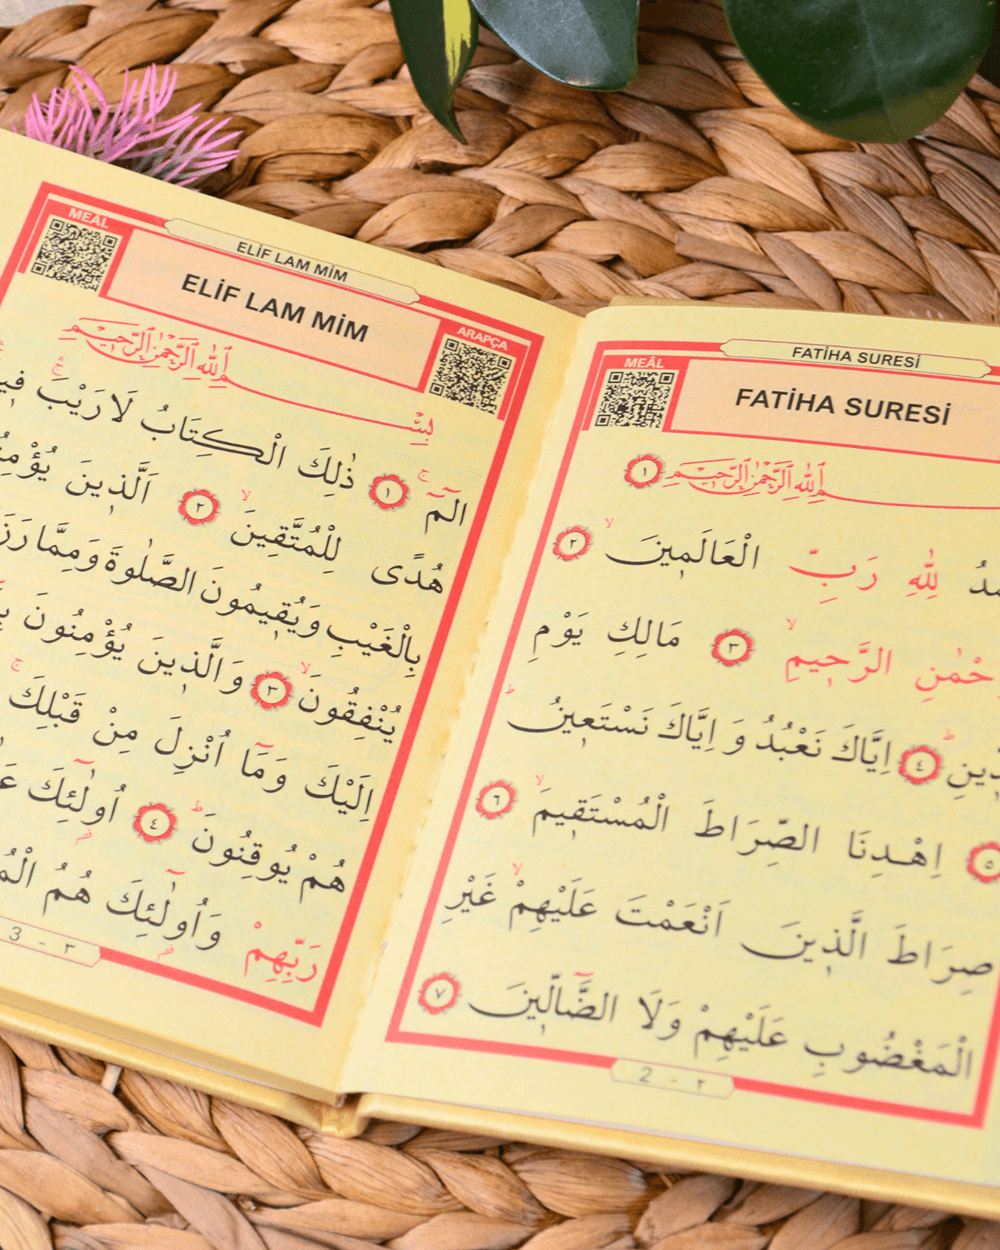 FATİHA SURESİ
MEÂL
FATİHA SURESİ
اللهِ الرَّحْمٰنِ الرَّحِيمِ ١
لِلّٰهِ رَبِّ الْعَالَمِينَ ۙ ٢
الرَّحِيمِ ۙ ٣ مَالِكِ يَوْمِ
ؕ ٤ اِيَّاكَ نَعْبُدُ وَ اِيَّاكَ نَسْتَعِينُ ؕ
٥ اِهْدِنَا الصِّرَاطَ الْمُسْتَقِيمَ ۙ ٦
صِرَاطَ الَّذِينَ اَنْعَمْتَ عَلَيْهِمْ ۙ غَيْرِ
الْمَغْضُوبِ عَلَيْهِمْ وَلَا الضَّٓالِّينَ ٧
2 - ٢
ELİF LAM MİM
MEÂL
ELİF LAM MİM
ARAPÇA
بِسْمِ اللهِ الرَّحْمٰنِ الرَّحِيمِ
الٓمٓ ۚ ١ ذٰلِكَ الْكِتَابُ لَا رَيْبَ ۚ
هُدًى لِلْمُتَّقِينَ ۙ ٢ اَلَّذِينَ
بِالْغَيْبِ وَيُقِيمُونَ الصَّلٰوةَ وَمِمَّا
يُنْفِقُونَ ۙ ٣ وَالَّذِينَ يُؤْمِنُونَ
اِلَيْكَ وَمَٓا اُنْزِلَ مِنْ قَبْلِكَ ۚ
هُمْ يُوقِنُونَ ؕ ٤ اُولٰٓئِكَ
رَبِّهِمْ وَاُولٰٓئِكَ هُمُ
3 - ٣